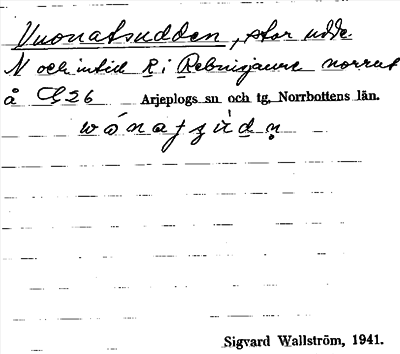 Vuonatsudden, stor udde
N och intid R i Rebnisjaure norrut
å C26 Arjeplogs sn och tg, Norrbottens län.
wónatsùdn̥
Sigvard Wallström, 1941.